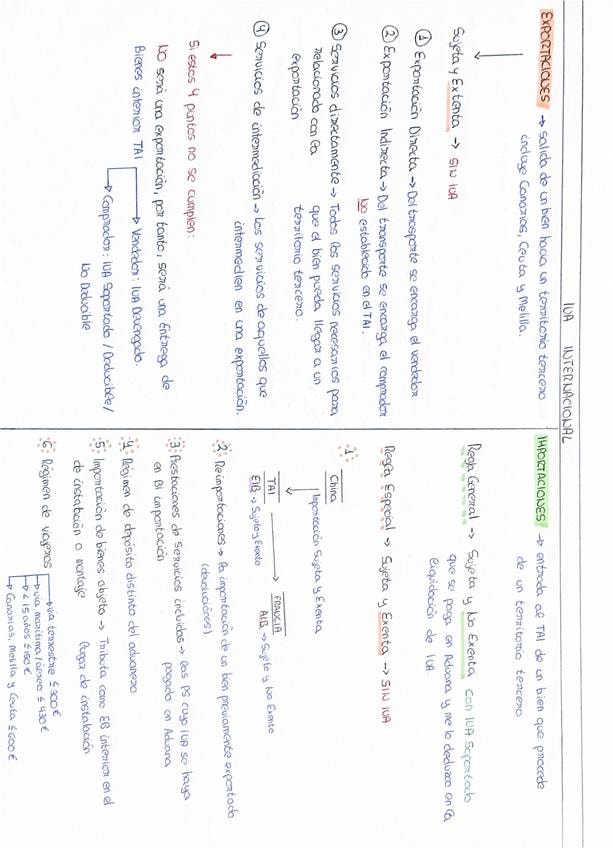 IVA INTERNACIONAL
EXPORTACIONES → salida de un bien hacia un territorio tercero
incluye Canarias, Ceuta y Melilla.
Sujeta y Extenta → SIN IVA
① Exportación Directa → Del trasporte se encarga el vendedor
② Exportación Indirecta → Del transporte se encarga el comprador
NO establecido en el TAI.
③ Servicios directamente → Todos los servicios necesarios para
relacionada con la que el bien pueda llegar a un
exportación territorio tercero.
④ Servicios de intermediación → Los servicios de aquellos que
intermedien en una exportación.
Si estos 4 puntos no se cumplen:
NO será una exportación, por tanto, será una Entrega de
Bienes interior TAI → Vendedor: IVA Devengado.
→ Comprador: IVA Soportado / Deducible /
No Deducible
IMPORTACIONES → entrada al TAI de un bien que procede
de un territorio tercero
Regla General → Sujeta y No Exenta con IVA Soportado
que se paga en Aduana y me lo deduzco en la
liquidación de IVA.
Regla Especial → Sujeta y Exenta → SIN IVA
1.
China
Importación Sujeta y Exenta
TAI → FRANCIA
EIB → Sujeto y Exento AIB → Sujeto y No Exento
2. Reimportaciones → la importación de un bien previamente exportado
(devoluciones)
3. Prestaciones de servicios incluidos → los PS cuyo IVA se haya
en BI importación pagado en Aduana
4. Régimen de depósito distinto del aduanero
5. Importación de bienes objeto → Tributa como EB interior en el
de instalación o montaje lugar de instalación
6. Régimen de viajeros
→ via terrestre ≤ 300€
→ via marítima/aéreo ≤ 430€
→ ≤ 15 años ≤ 150€
→ Canarias, Melilla y Ceuta ≤ 600€